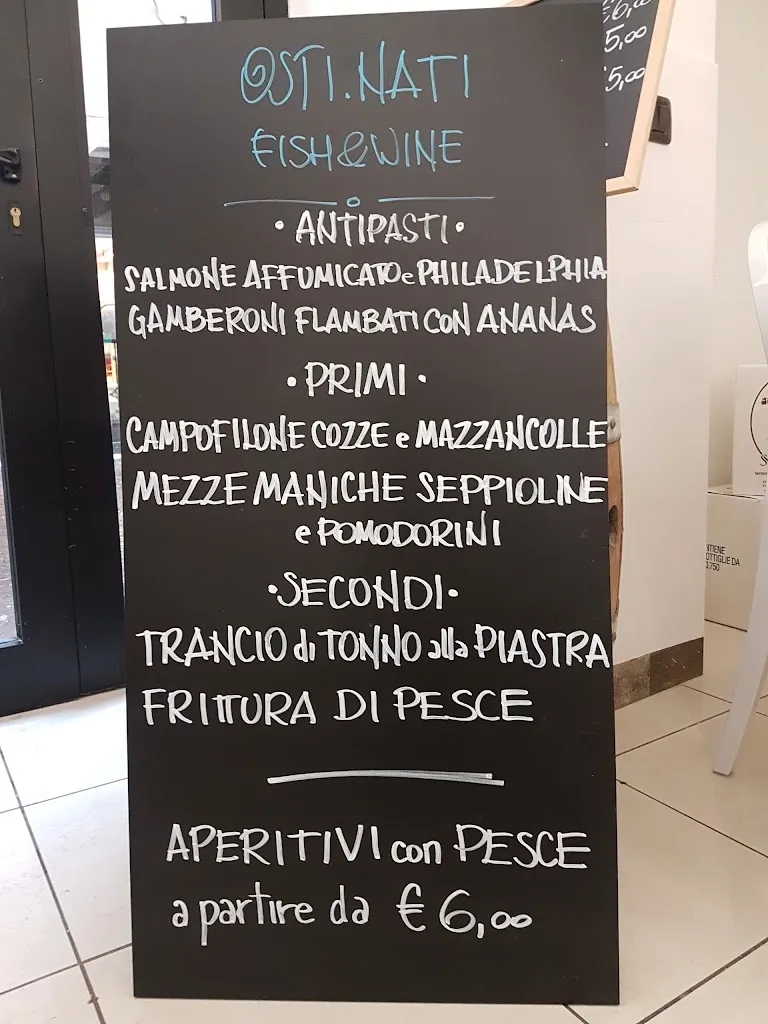 OSTI.NATI
FISH&WINE
• ANTIPASTI •
SALMONE AFFUMICATO e PHILADELPHIA
GAMBERONI FLAMBATI CON ANANAS
• PRIMI •
CAMPOFILONE COZZE e MAZZANCOLLE
MEZZE MANICHE SEPPIOLINE
e POMODORINI
• SECONDI •
TRANCIO di TONNO alla PIASTRA
FRITTURA DI PESCE
APERITIVI con PESCE
a partire da € 6,00
€6,00
5,00
€5,00
OTTIGLIE DA